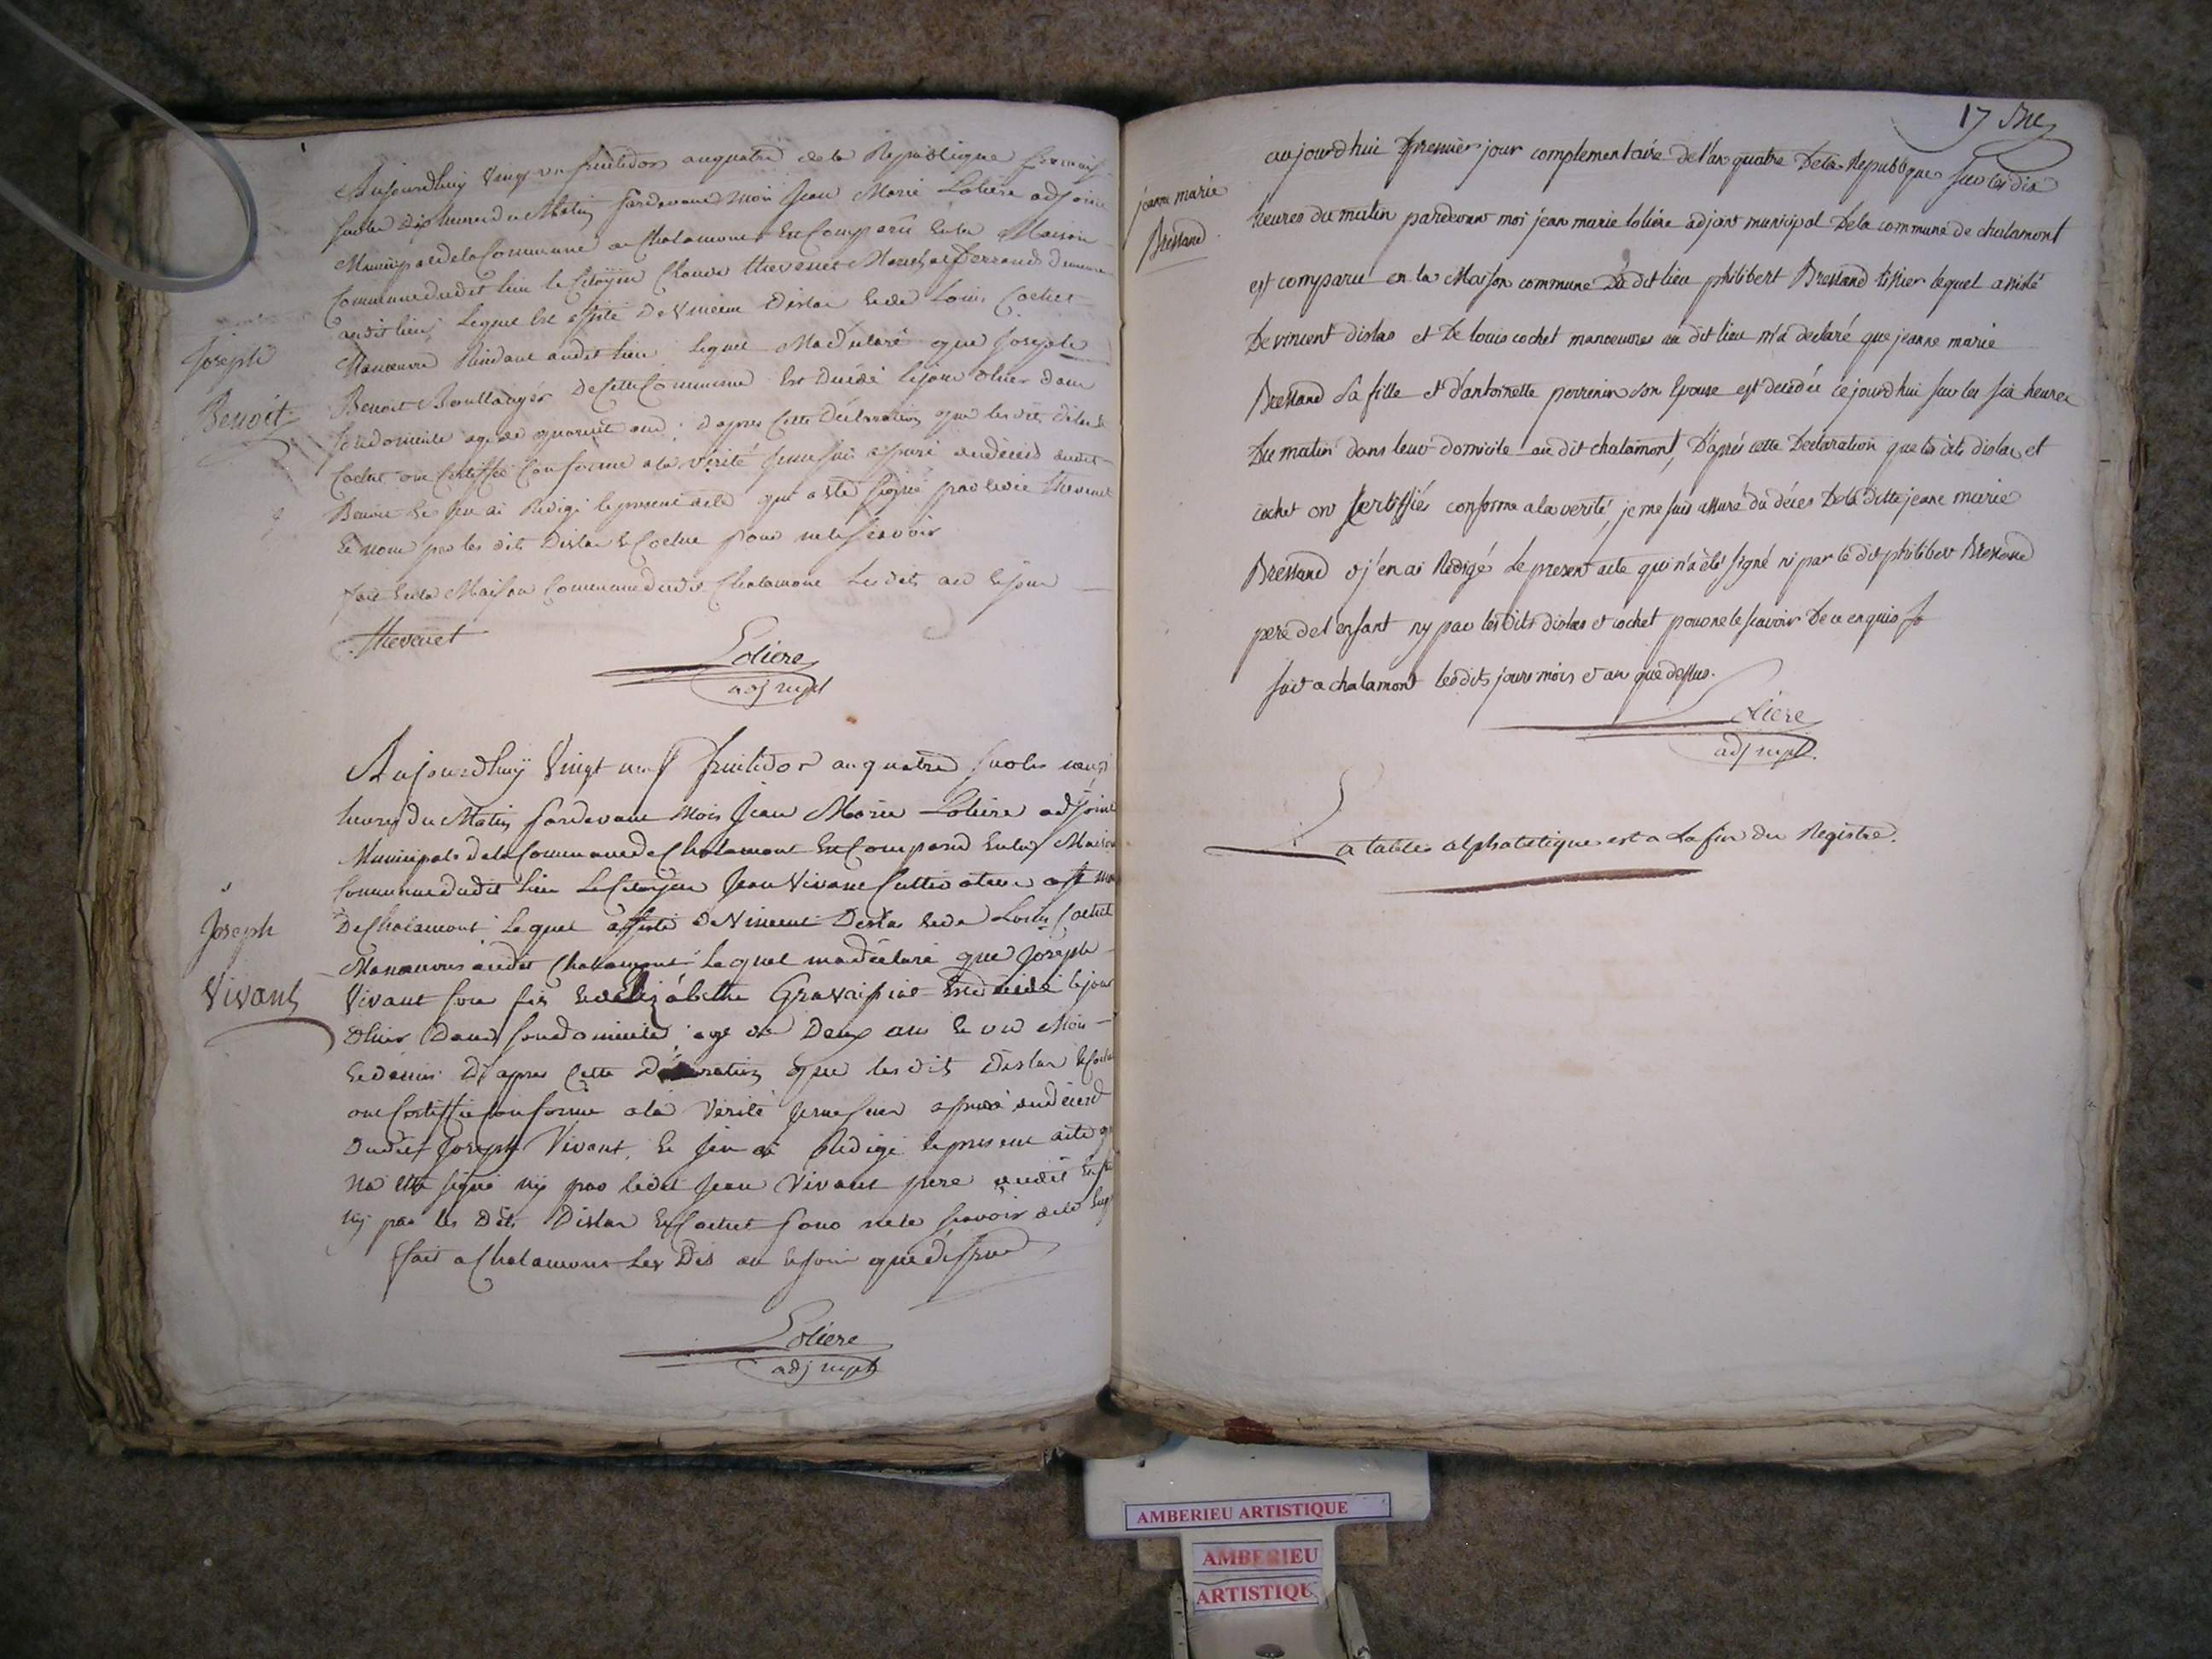 Aujourdhuy Vingt un fruitidor an quatre de la Republique francais
sur les dix heures du Matin pardevant Moi Jean Marie Loliere adjoint
Municipal de la Commune de Chalamont Est Comparu En la Maison
Commune dudit lieu le Citoyen Claude thevenet Marechal ferrand
audit lieu, Lequel assisté De Vincent Dislas Et de Louis Cochet
Manoeuvre Residant audit lieu Lequel Ma Declaré que Joseph
Joseph
Benoit
Benoit Boullanger De Cette Commune Est Décédé le jour d'hier dans
son domicile agé de quarente ans ; d'apres Cette Déclaration que les dits Dislas &
Cochet ont Certiffié Conforme a la Vérité Je me suis assuré du décès dudit
Benoit Et j'en ai Redigé le present acte qui a eté signé par le dit thevenet
Et non par les dits Dislas & Cochet pour ne le scavoir
fait En la Maison Commune dudit Chalamont Les dits an Et jour
thevenet
Loliere
adj mpl
Aujourdhuy Vingt neuf fruitidor an quatre sur les neuf
heures du Matin pardevant Mois Jean Marie Loliere adjoint
Municipal de la Commune de Chalamont Est Comparu En la Maison
Commune dudit lieu Le Citoyen Jean Vivant Cultivateur
De Chalamont Lequel assisté De Vincent Dislas Et de Louis Cochet
Joseph
Vivant
Manoeuvres audit Chalamont Lequel ma déclaré que Joseph
Vivant son fis Et de Elizabethe Est décédé le jour
d'hier Dans son domicile, agé de Deux ans Et un Mois
Et demis D'apres Cette Déclaration que les dits Dislas & Cochet
ont Certiffié Conforme a la Vérité Je me suis assuré du décès
Dudit Joseph Vivant, Et j'en ai Redigé le present acte
Na eté signé ny par ledit Jean Vivant pere dudit
ny par les Dits Dislas & Cochet pour ne le scavoir
fait a Chalamont Les Dis an Et jour que dessus
Loliere
adj mpl
17
aujourdhui premier jour complementaire de l'an quatre Dela Republique sur les dix
jeanne marie
Bressand
heures du matin pardevant moi jean marie loliére adjoint municipal Dela commune de chalamont
est comparu en la Maison commune du dit lieu philibert Bressand tissier lequel assisté
De vincent dislas et De louis cochet manoeuvres au dit lieu m'a declaré que jeanne marie
Bressand Sa fille et d'antoinette perrenin son Epouse est decedée ce jourd'hui sur les six heures
Du matin dans leur domicile au dit chalamont, D'aprés cette Declaration que les dits dislas et
cochet ont Certiffiés conforme a la verité, je me suis assuré du déces Dela ditte jeanne marie
Bressand et j'en ai Redigé Le present acte qui n'a été signé ni par le dit philibert Bressand
pere del enfant ny par les dits dislas et cochet pour ne le scavoir De ce enquis
fait a chalamont les dits jours mois et an que dessus.
Loliere
adj mpl.
La table alphabetique est a La fin du Registre.
AMBERIEU ARTISTIQUE
AMBERIEU
ARTISTIQUE